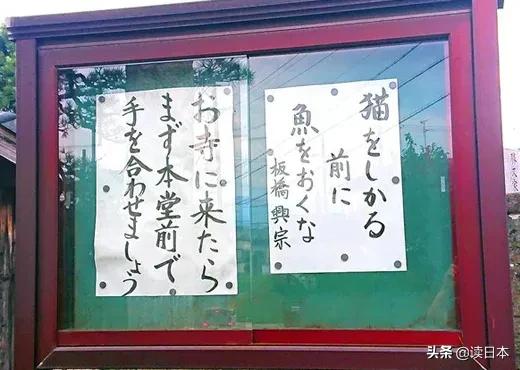 猫をしかる
前に
魚をおくな
板橋興宗
お寺に来たら
まず本堂前で
手を合わせましょう
头条 @读日本